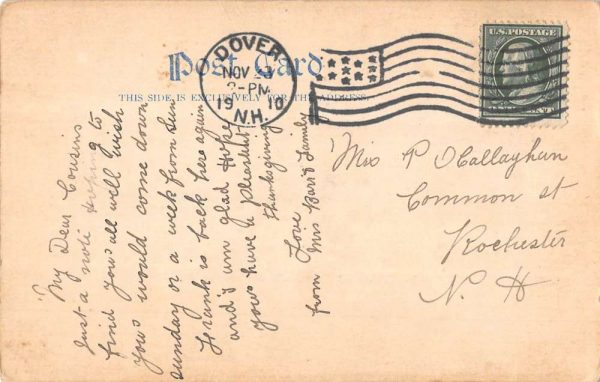 Post Card
THIS SIDE IS EXCLUSIVELY FOR THE ADDRESS.
DOVER
NOV 23
2-PM
1910
N.H.
U.S. POSTAGE
My Dear Cousins
Just a note hoping to
find yous all well wish
yous would come down
sunday or a week from Sun
Frank is back here again
and i am glad Hope
yous have a pleasant
thanksgiving
Love
from Mrs Barrs Family
Mrs P O'Callaghan
Common st
Rochester
N. H